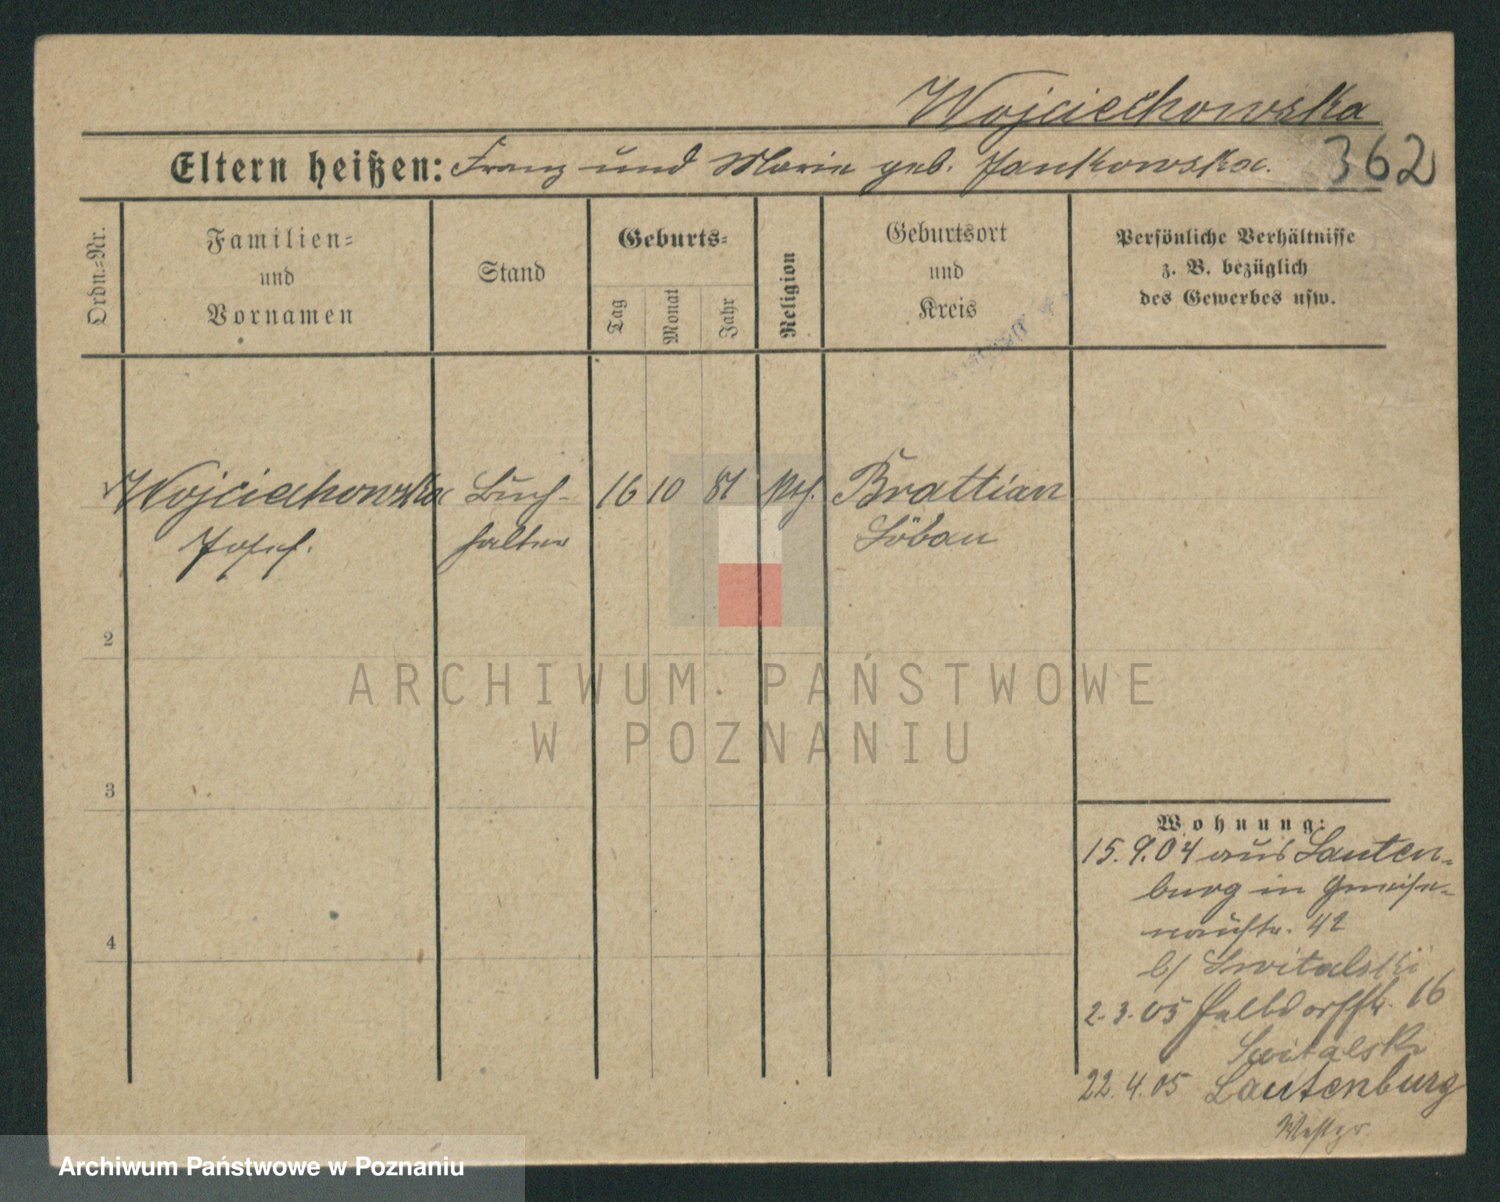 Wojciechowska
Eltern heißen: Franz und Marie geb. Jankowska.
362
Ordn.-Nr.
Familien-
und
Vornamen
Stand
Geburts-
Tag
Monat
Jahr
Religion
Geburtsort
und
Kreis
Persönliche Verhältnisse
z. B. bezüglich
des Gewerbes usw.
Wojciechowska Buch- 16 10 81 Brattian
Josef. halter Löbau
2
ARCHIWUM PAŃSTWOWE
W POZNANIU
3
4
Wohnung:
15.9.04 aus Lauten-
burg in Gneise-
naustr. 42
b/ Switalski
2.3.05 16
Switalski
22.4.05 Lautenburg
Westpr.
Archiwum Państwowe w Poznaniu